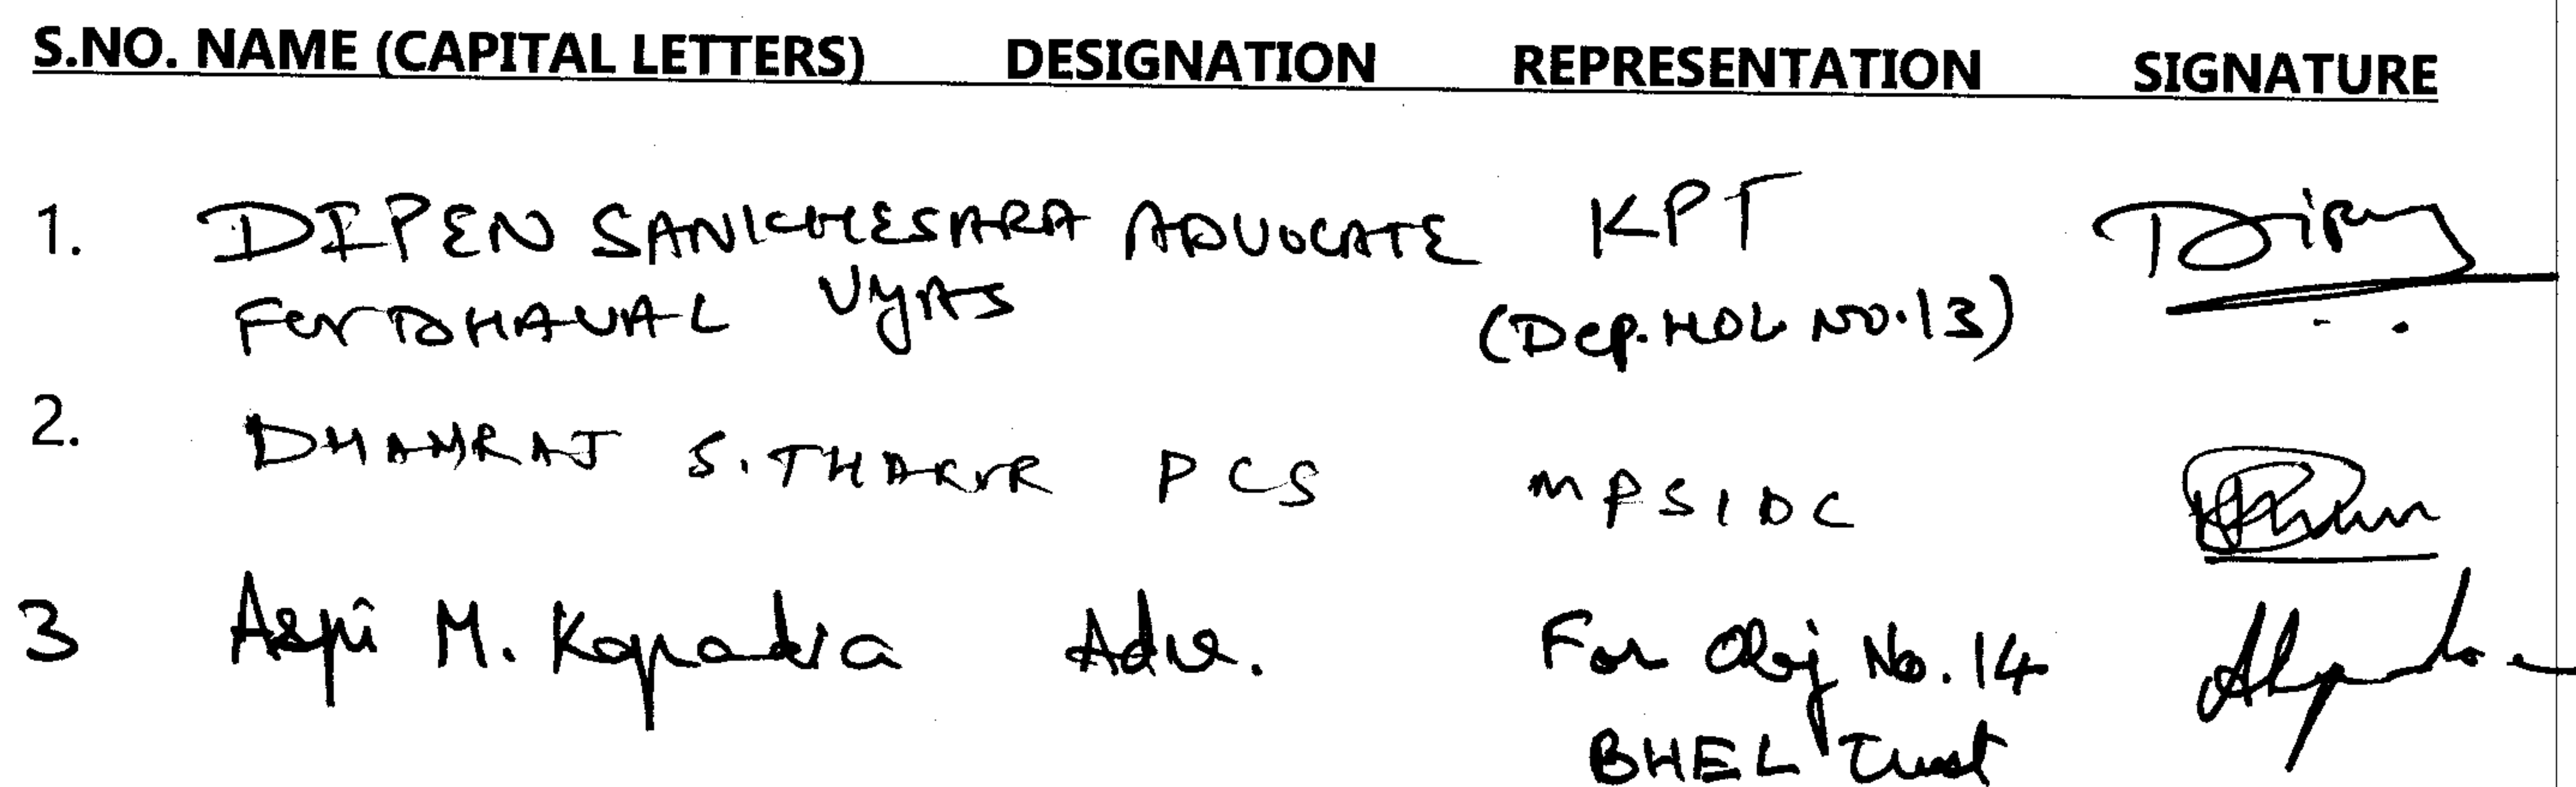 S.NO. NAME (CAPITAL LETTERS) DESIGNATION REPRESENTATION SIGNATURE
1. DIPEN SANKHESARA ADVOCATE KPT
For DHAVAL VYAS (Dep. HOL NO.13)
2. DHANRAJ S. THAKUR PCS MPSIDC
3 Aspi M. Kapadia Adv. For Obj No. 14
BHEL Trust